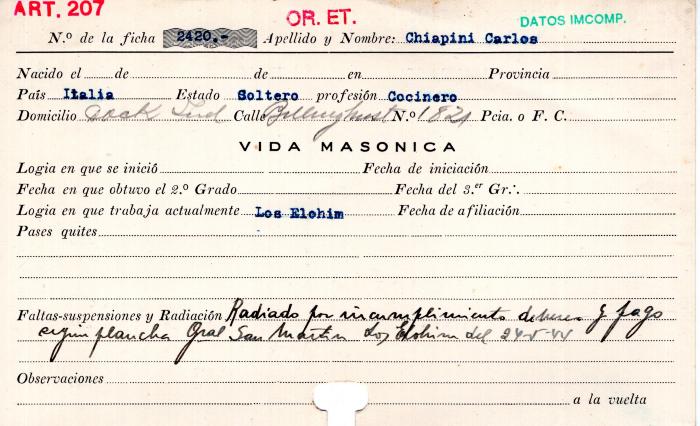 ART. 207
OR. ET.
DATOS IMCOMP.
N.º de la ficha 2420.- Apellido y Nombre: Chiapini Carlos
Nacido el de de en Provincia
País Italia Estado Soltero profesión Cocinero
Domicilio Calle Billinghurst N.º 1821 Pcia. o F. C.
VIDA MASONICA
Logia en que se inició Fecha de iniciación
Fecha en que obtuvo el 2.º Grado Fecha del 3.er Gr∴
Logia en que trabaja actualmente Los Elohim Fecha de afiliación
Pases quites
Faltas-suspensiones y Radiación Radiado por incumplimiento deberes y pago
según plancha Gral San Martin Los Elohim del
Observaciones
a la vuelta